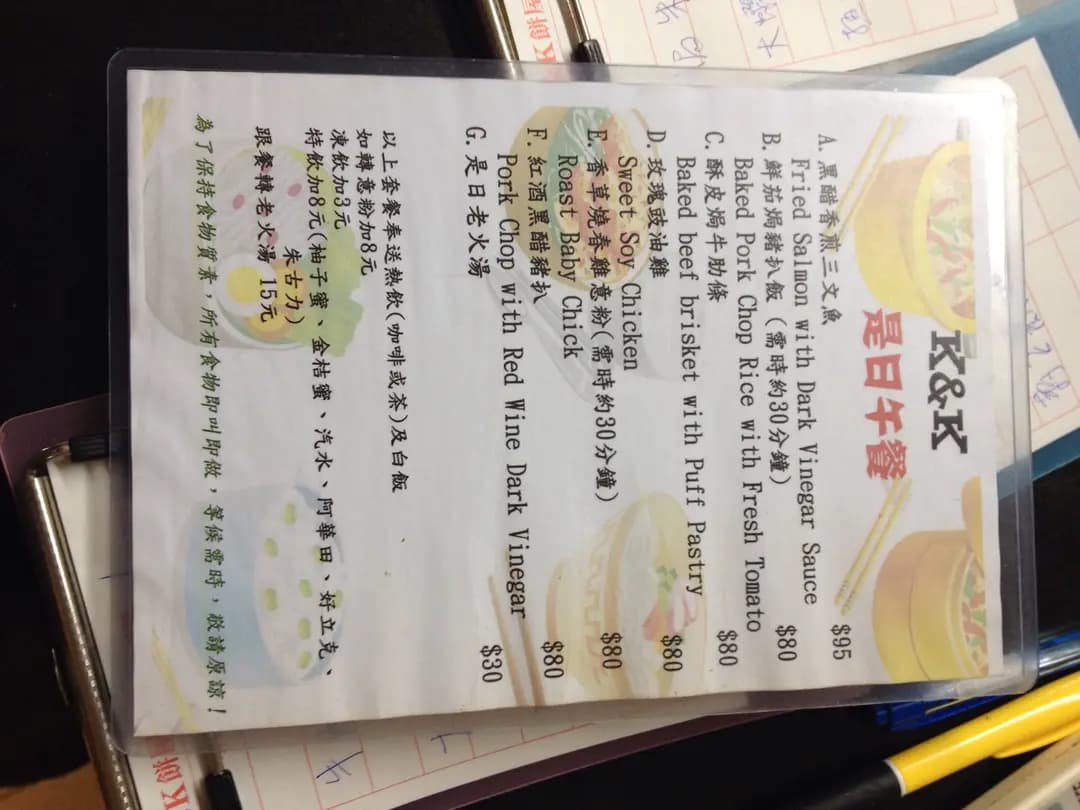 K&K
是日午餐
A. 黑醋香煎三文魚
Fried Salmon with Dark Vinegar Sauce $95
B. 鮮茄焗豬扒飯 (需時約30分鐘)
Baked Pork Chop Rice with Fresh Tomato $80
C. 酥皮焗牛肋條
Baked beef brisket with Puff Pastry $80
D. 玫瑰豉油雞
Sweet Soy Chicken $80
E. 香草燒春雞意粉(需時約30分鐘)
Roast Baby Chick $80
F. 紅酒黑醋豬扒
Pork Chop with Red Wine Dark Vinegar $80
G. 是日老火湯 $30
以上套餐奉送熱飲(咖啡或茶)及白飯
如轉意粉加8元
凍飲加3元
特飲加8元(柚子蜜、金桔蜜、汽水、阿華田、好立克、
朱古力)
跟餐轉老火湯 15元
為了保持食物質素,所有食物即叫即做,等候需時,敬請原諒!
K餅